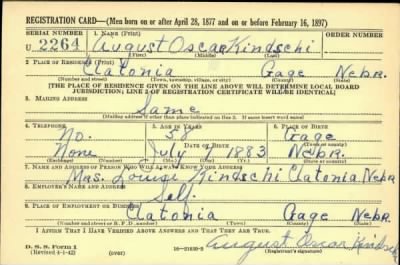 REGISTRATION CARD—(Men born on or after April 28, 1877 and on or before February 16, 1897)
SERIAL NUMBER 1. NAME (Print) ORDER NUMBER
U 2264 August Oscar Kindschi
(First) (Middle) (Last)
2. PLACE OF RESIDENCE (Print)
Clatonia Gage Nebr.
(Number and street) (Town, township, village, or city) (County) (State)
[THE PLACE OF RESIDENCE GIVEN ON THE LINE ABOVE WILL DETERMINE LOCAL BOARD
JURISDICTION; LINE 2 OF REGISTRATION CERTIFICATE WILL BE IDENTICAL]
3. MAILING ADDRESS
Same
[Mailing address if other than place indicated on line 2. If same insert word same]
4. TELEPHONE 5. AGE IN YEARS 6. PLACE OF BIRTH
No. 58 Gage
DATE OF BIRTH (Town or county)
None July 1883 Nebr.
(Exchange) (Number) (Mo.) (Day) (Yr.) (State or country)
7. NAME AND ADDRESS OF PERSON WHO WILL ALWAYS KNOW YOUR ADDRESS
Mrs. Louise Kindschi Clatonia, Nebr
8. EMPLOYER'S NAME AND ADDRESS
Self.
9. PLACE OF EMPLOYMENT OR BUSINESS
Clatonia Gage Nebr.
(Number and street or R. F. D. number) (Town) (County) (State)
I AFFIRM THAT I HAVE VERIFIED ABOVE ANSWERS AND THAT THEY ARE TRUE.
D. S. S. Form 1
(Revised 4-1-42) (over) August Oscar Kindschi
(Registrant's signature)